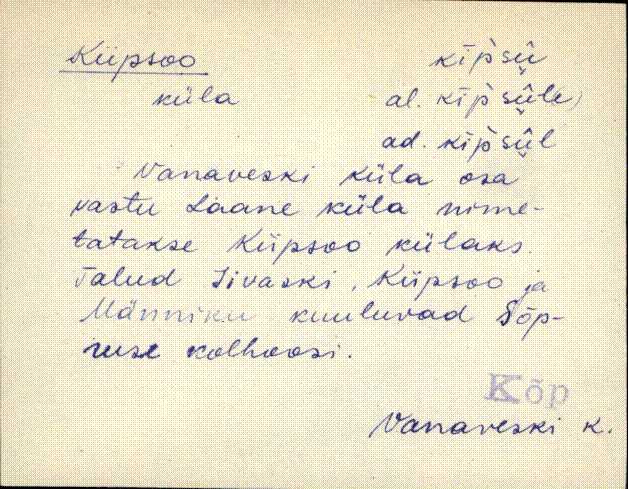 Kiipsoo kīp̀sü̬
küla al. kīp̀sü̬le,
ad. kīp̀sü̬l
Vanaveski küla osa
vastu Laane küla nime-
tatakse Kiipsoo külaks.
Talud Iivaski, Kiipsoo ja
Männiku kuuluvad Sõp-
ruse kolhoosi.
Kõp
Vanaveski k.